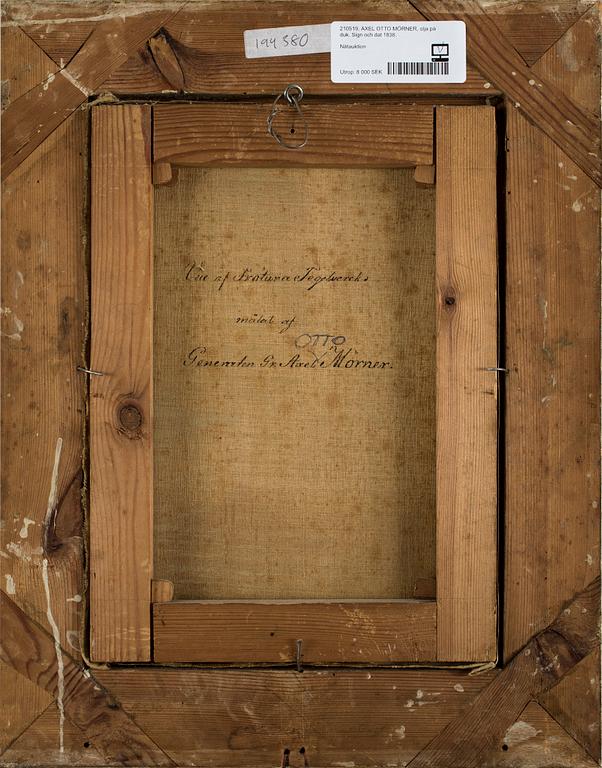 194380
210519, AXEL OTTO MÖRNER, olja på
duk. Sign och dat 1838.
Nätauktion
Utrop: 8 000 SEK
Vue af Frötuna Tegelverck
målat af
OTTO
Generalen Gr. Axel Mörner.